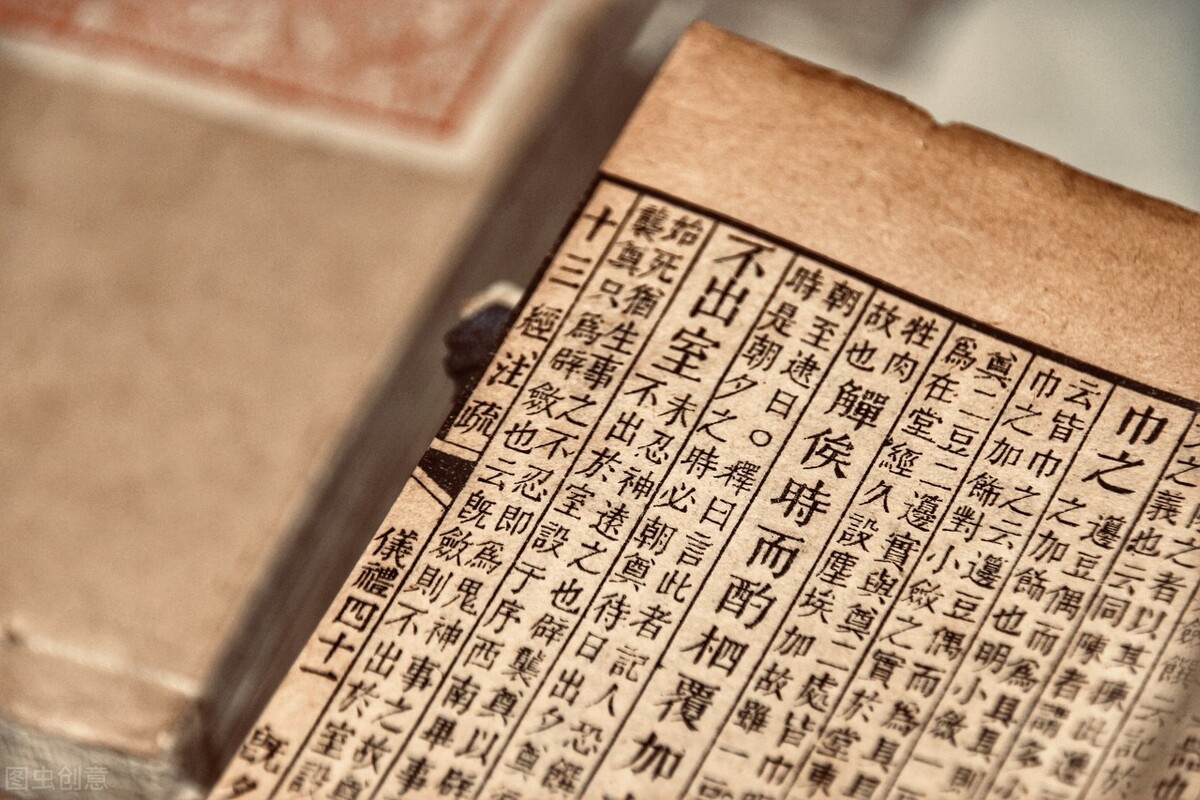 之義也云同
巾之
籩豆偶而為具具則
之加飾也明小斂一
云皆巾之云籩豆偶而為具
巾之加飾對小斂之實於堂東
奠二豆二籩實與奠二處皆巾
為在堂經久設塵埃加故雖一
牲肉
故也
觶俟時而酌柶覆加
朝至逮日○釋曰言此者記人恐饌
時是朝夕之時必朝奠待日出夕奠
不出室
未忍神遠之也辟襲奠以辟
不出於室設于序西南畢事
始死猶生事之不忍即為鬼神事之故奠
襲奠只為辟斂也云既斂則不出於室設
十三經注疏
儀禮四十一
既夕
图虫创意